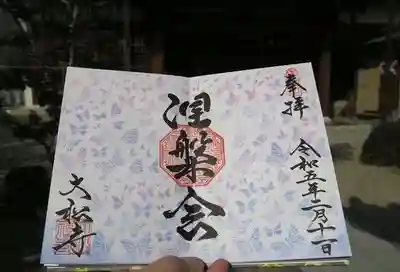 奉拝
令和五年二月十一日
涅槃会
大松寺